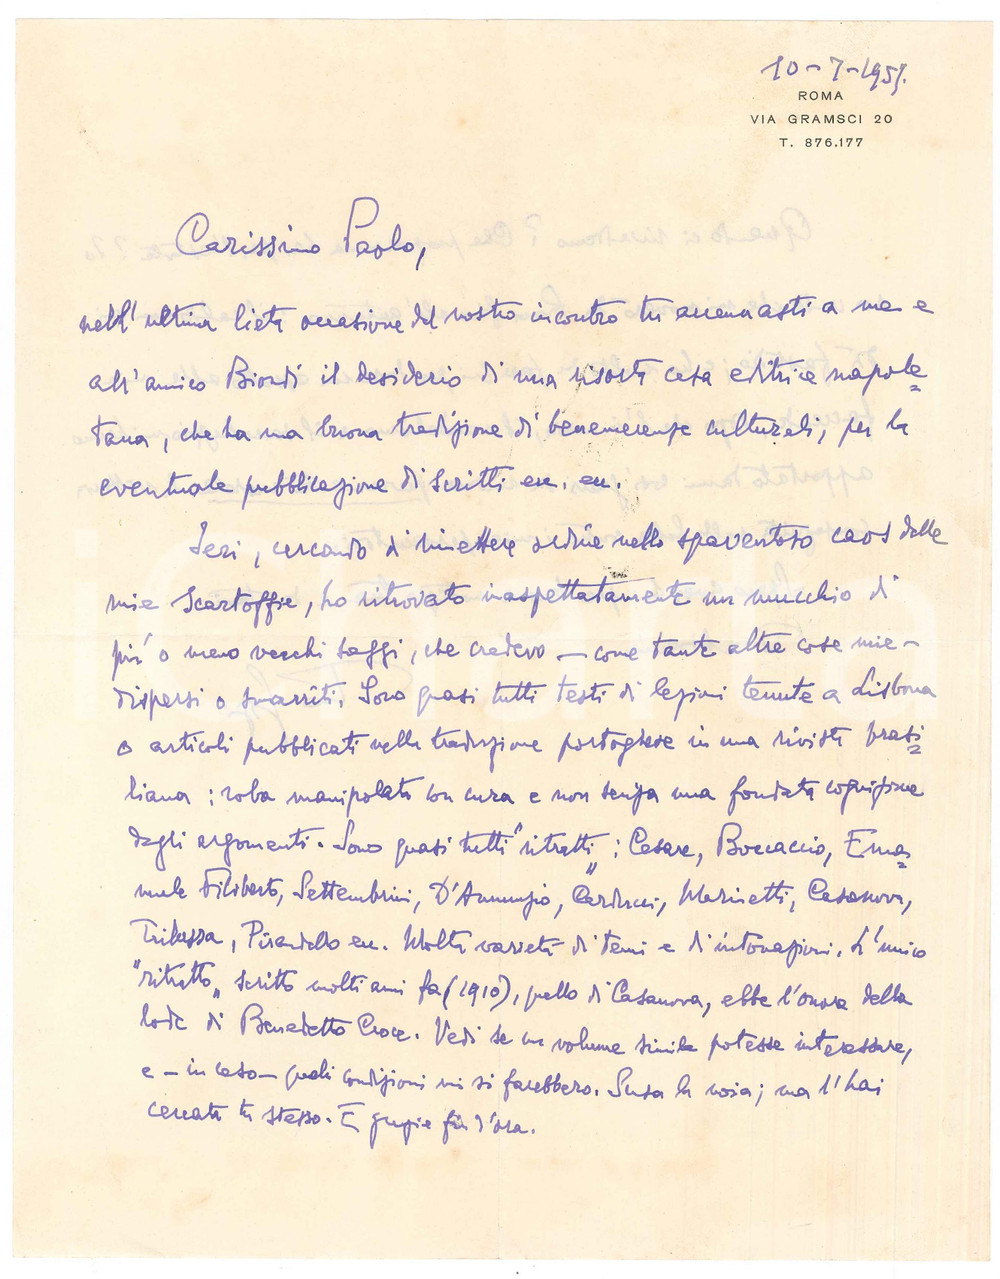 10-7-1957.
ROMA
VIA GRAMSCI 20
T. 876.177
Carissimo Paolo,
nell'ultima lieta occasione del nostro incontro tu accennasti a me e
all'amico Biondi il desiderio di una risorta casa editrice napole=
tana, che ha una buona tradizione di benemerenze culturali, per la
eventuale pubblicazione di scritti ecc. ecc.
Ieri, cercando di rimettere ordine nello spaventoso caos delle
mie scartoffie, ho ritrovato inaspettatamente un mucchio di
più o meno vecchi saggi, che credevo — come tante altre cose mie —
dispersi o smarriti. Sono quasi tutti testi di lezioni tenute a Lisbona
o articoli pubblicati nella traduzione portoghese in una rivista brasi=
liana: roba manipolata con cura e non senza una fondata cognizione
degli argomenti. Sono quasi tutti "ritratti": Cesare, Boccaccio, Ema=
nuele Filiberto, Settembrini, D'Annunzio, Carducci, Marinetti, Casanova,
Trilussa, Pirandello ecc. Molta varietà di temi e di intonazioni. L'unico
"ritratto" scritto molti anni fa (1910), quello di Casanova, ebbe l'onore della
lode di Benedetto Croce. Vedi se un volume simile potesse interessare,
e — in caso — quali condizioni mi si farebbero. Scusa la noia; ma l'hai
cercata tu stesso. E grazie fin d'ora.